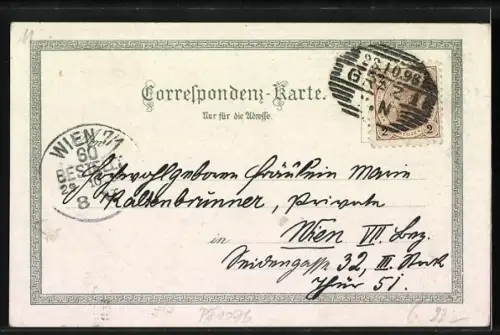 Correspondenz-Karte.
Nur für die Adresse.
28.10.98
GRAZ 1
N
2 2
WIEN 7/1
60
BESTELLT
29 10
8
Hochwolgeboren Fräulein Marie
Kaltenbrunner, Private
in Wien VII. Bez.
Seidengasse 32, III. Stock
Thür 51.